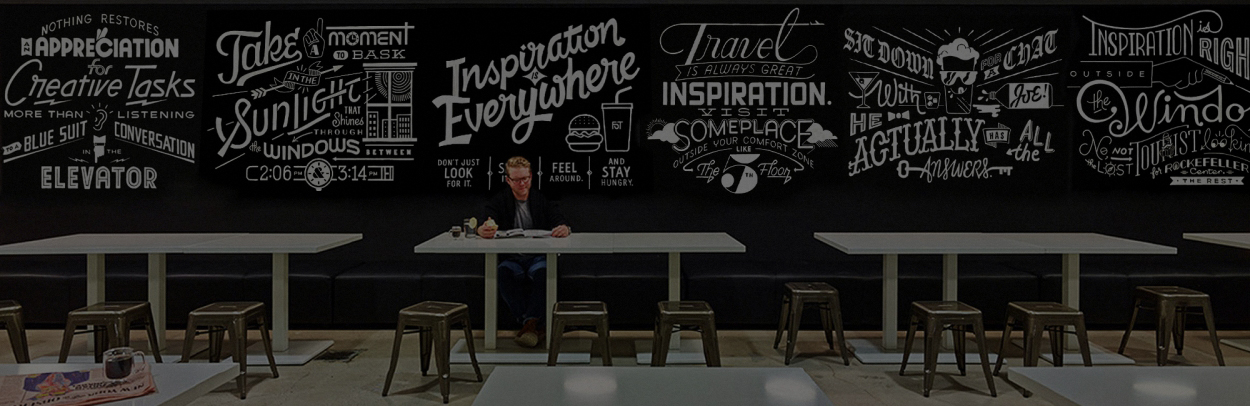 NOTHING RESTORES
AN APPRECIATION
for
Creative Tasks
MORE THAN LISTENING
TO A BLUE SUIT CONVERSATION
IN THE
ELEVATOR
Take A MOMENT
TO BASK
IN THE
Sunlight
THAT
Shines
THROUGH
the WINDOWS
BETWEEN
2:06 PM 3:14 PM
Inspiration
IS
Everywhere
DON'T JUST
LOOK
FOR IT.
FEEL
AROUND.
AND
STAY
HUNGRY.
Travel
IS ALWAYS GREAT
INSPIRATION.
VISIT
SOMEPLACE
OUTSIDE YOUR COMFORT ZONE
LIKE
The 7TH Floor
SIT DOWN FOR A CHAT
With
JOE!
HE
ACTUALLY
HAS ALL
the
ANSWERS.
INSPIRATION is
RIGH
OUTSIDE
the Windo
No NOT
the LAST TOURIST lookin
for ROCKEFELLER
Center.
THE REST